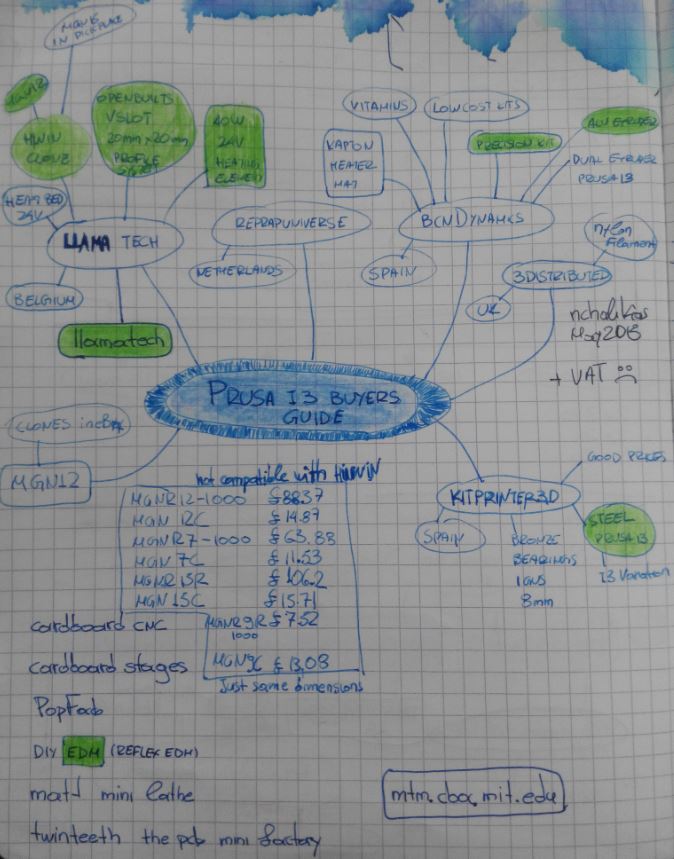 IN PICK PLACE
HWIN
CLONE
HEAT BED
24V
OPENBUILTS
VSLOT
20mm x 20mm
PROFILE
40W
24V
HEATING
ELEMENT
LLAMA TECH
BELGIUM
llamatech
REPRAPUNIVERSE
NETHERLANDS
VITAMINS
LOW COST KITS
KAPTON
HEATER
MAT
PRECISION KIT
ALU EXTRUDER
DUAL EXTRUDER
PRUSA I3
BCN DYNAMICS
SPAIN
nylon
Filament
3DISTRIBUTED
UK
nchalikias
May 2013
+ VAT ☹
PRUSA I3 BUYERS
GUIDE
CLONES
MGN12
not compatible with HIWIN
MGNR12-1000 £88.37
MGN 12C £14.87
MGNR7-1000 £63.88
MGN 7C £11.53
MGNR15R £106.2
MGN 15C £15.71
MGNR9R £7.52
1000
MGN9C £13.08
Just same dimensions
GOOD PRICES
KITPRINTER3D
SPAIN
BRONZE
BEARINGS
IGUS
8mm
STEEL
PRUSA I3
I3 Variation
cardboard CNC
cardboard stages
PopFab
DIY EDM (REFLEX EDM)
mini lathe
twinteeth the pcb mini factory
mtm.cba.mit.edu